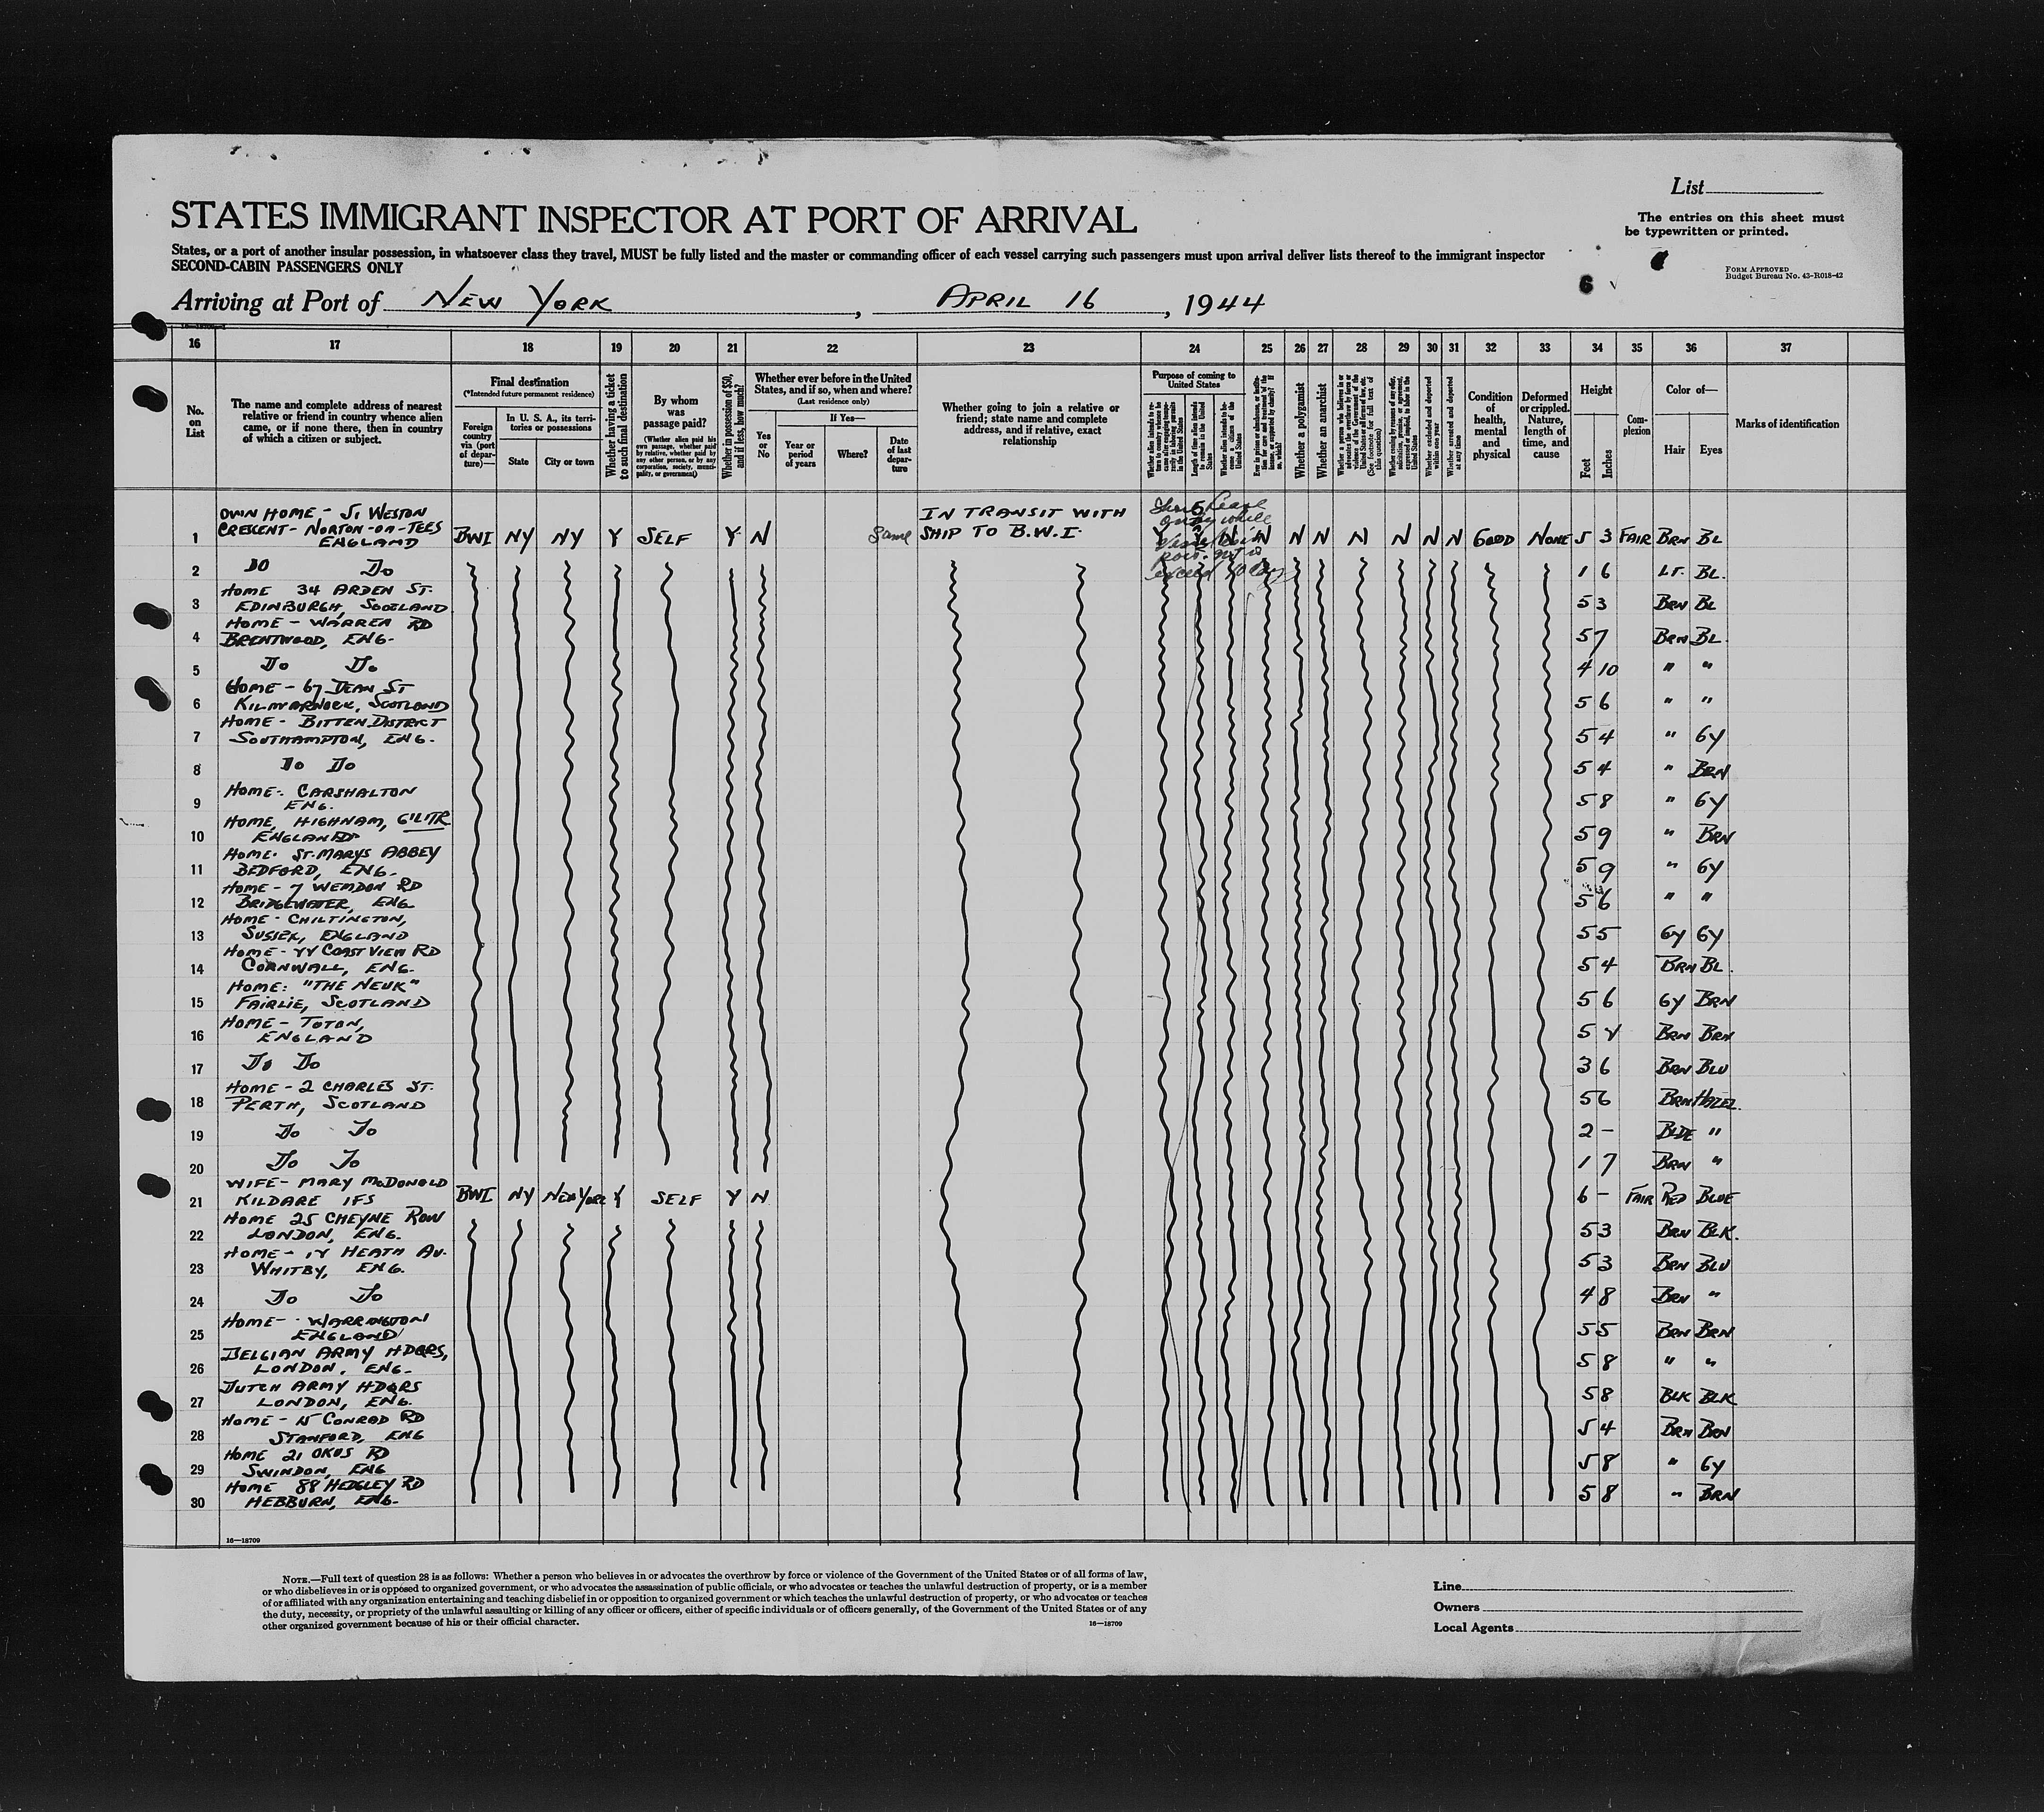 List
STATES IMMIGRANT INSPECTOR AT PORT OF ARRIVAL
The entries on this sheet must
be typewritten or printed.
States, or a port of another insular possession, in whatsoever class they travel, MUST be fully listed and the master or commanding officer of each vessel carrying such passengers must upon arrival deliver lists thereof to the immigrant inspector
SECOND-CABIN PASSENGERS ONLY
FORM APPROVED
Budget Bureau No. 43-R018-42
6
Arriving at Port of NEW YORK, APRIL 16, 1944
16 17 18 19 20 21 22 23 24 25 26 27 28 29 30 31 32 33 34 35 36 37
No. on List
The name and complete address of nearest relative or friend in country whence alien came, or if none there, then in country of which a citizen or subject.
Final destination
(*Intended future permanent residence)
Foreign country via (port of departure)—
In U. S. A., its territories or possessions
State
City or town
Whether having a ticket to such final destination
By whom was passage paid?
(Whether alien paid his own passage, whether paid by relative, whether paid by any other person, or by any corporation, society, municipality, or government)
Whether in possession of $50, and if less, how much?
Whether ever before in the United States, and if so, when and where?
(Last residence only)
Yes or No
If Yes—
Year or period of years
Where?
Date of last departure
Whether going to join a relative or friend; state name and complete address, and if relative, exact relationship
Purpose of coming to United States
Length of time alien intends to remain in the United States
Whether a polygamist
Whether an anarchist
(See footnote for full text of this question)
Whether excluded and deported within one year
Whether arrested and deported at any time
Condition of health, mental and physical
Deformed or crippled. Nature, length of time, and cause
Height
Feet
Inches
Complexion
Color of—
Hair
Eyes
Marks of identification
1 OWN HOME - 51 WESTON CRESCENT - NORTON-ON-TEES ENGLAND BWI NY NY Y SELF Y N Same IN TRANSIT WITH SHIP TO B.W.I. Y N N N N N N N N GOOD NONE 5 3 FAIR BRN BL
2 DO DO 1 6 LT. BL.
3 HOME 34 ARDEN ST. EDINBURGH, SCOTLAND 5 3 BRN BL
4 HOME - WARREN RD BRENTWOOD, ENG. 5 7 BRN BL.
5 DO DO 4 10 " "
6 HOME - 67 DEAN ST KILMARNOCK, SCOTLAND 5 6 " "
7 HOME - BITTEN DISTRICT SOUTHAMPTON, ENG. 5 4 " GY
8 DO DO 5 4 " BRN
9 HOME - CARSHALTON ENG. 5 8 " GY
10 HOME, HIGHNAM, ENGLAND 5 9 " BRN
11 HOME - ST. MARYS ABBEY BEDFORD, ENG. 5 9 " GY
12 HOME - 7 WEMDON RD BRIDGEWATER, ENG. 5 6 " "
13 HOME - CHILTINGTON, SUSSEX, ENGLAND 5 5 GY GY
14 HOME - COAST VIEW RD CORNWALL, ENG. 5 4 BRN BL.
15 HOME: "THE NEUK" FAIRLIE, SCOTLAND 5 6 GY BRN
16 HOME - TOTON, ENGLAND 5 BRN BRN
17 DO DO 3 6 BRN BLU
18 HOME - 2 CHARLES ST. PERTH, SCOTLAND 5 6 BRN HAZEL.
19 DO DO 2 - BLDE "
20 DO DO 1 7 BRN "
21 WIFE - MARY McDONALD KILDARE IFS BWI NY NEW YORK Y SELF Y N 6 - FAIR RED BLUE
22 HOME 25 CHEYNE ROW LONDON, ENG. 5 3 BRN BLK.
23 HOME - HEATH AV. WHITBY, ENG. 5 3 BRN BLU
24 DO DO 4 8 BRN "
25 HOME - WARRINGTON ENGLAND 5 5 BRN BRN
26 BELGIAN ARMY HDQRS, LONDON, ENG. 5 8 " "
27 DUTCH ARMY HDQRS LONDON, ENG. 5 8 BLK BLK
28 HOME - 15 CONRAD RD STANFORD, ENG 5 4 BRN BRN
29 HOME 21 OKUS RD SWINDON, ENG 5 8 " GY
30 HOME 88 HEDGLEY RD HEBBURN, ENG. 5 8 " BRN
16—18709
NOTE.—Full text of question 28 is as follows: Whether a person who believes in or advocates the overthrow by force or violence of the Government of the United States or of all forms of law,
or who disbelieves in or is opposed to organized government, or who advocates the assassination of public officials, or who advocates or teaches the unlawful destruction of property, or is a member
of or affiliated with any organization entertaining and teaching disbelief in or opposition to organized government or which teaches the unlawful destruction of property, or who advocates or teaches
the duty, necessity, or propriety of the unlawful assaulting or killing of any officer or officers, either of specific individuals or of officers generally, of the Government of the United States or of any
other organized government because of his or their official character.
16—18709
Line
Owners
Local Agents